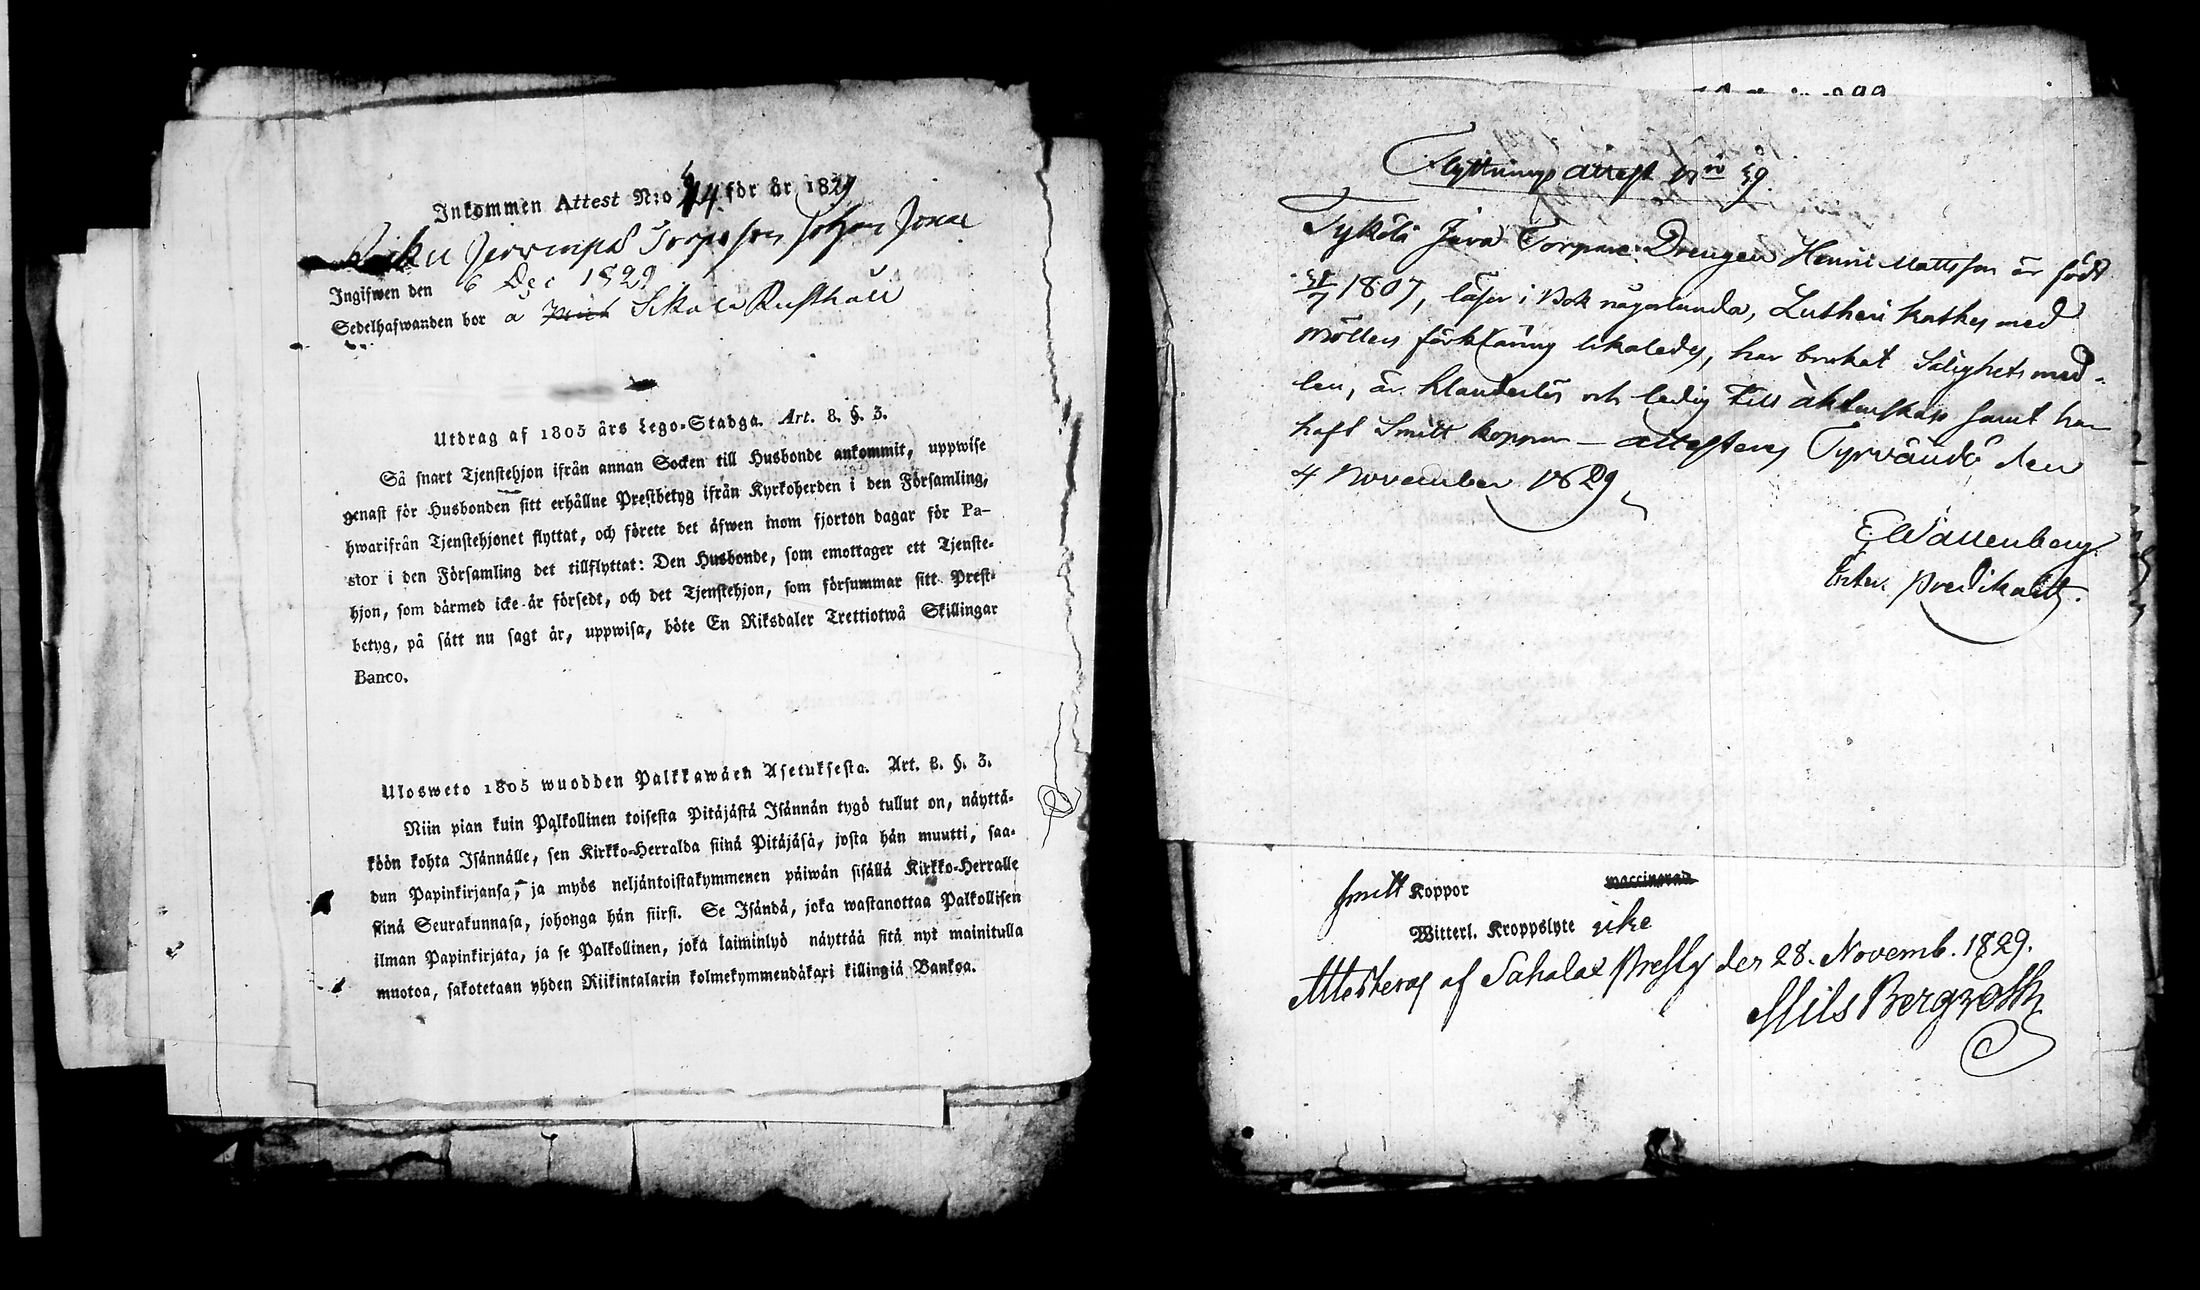 Inkommen Attest N:o 44 för år 1829
Torpson Johan Jonae
Ingifwen den 6 Dec 1829
Sedelhafwanden bor å Sikala Rusthåll
Utdrag af 1805 års Lego-Stadga. Art. 8. §. 3.
Så snart Tjenstehjon ifrån annan Socken till Husbonde ankommit, uppwise
genast för Husbonden sitt erhållne Prestbetyg ifrån Kyrkoherden i den Församling,
hwarifrån Tjenstehjonet flyttat, och förete det äfwen inom fjorton dagar för Pa-
stor i den Församling det tillflyttat: Den Husbonde, som emottager ett Tjenste-
hjon, som därmed icke är försedt, och det Tjenstehjon, som försummar sitt Prest-
betyg, på sätt nu sagt är, uppwisa, böte En Riksdaler Trettiotwå Skillingar
Banco.
Ulosweto 1805 wuodden Palkkawäen Asetuksesta. Art. 8. §. 3.
Niin pian kuin Palkollinen toisesta Pitäjästä Isännän tygö tullut on, näyttä-
köön kohta Isännälle, sen Kirkko-Herralda siinä Pitäjäsä, josta hän muutti, saa-
dun Papinkirjansa, ja myös neljäntoistakymmenen päiwän sisällä Kirkko-Herralle
siinä Seurakunnasa, johonga hän siirsi. Se Isändä, joka wastanottaa Palkollisen
ilman Papinkirjata, ja se Palkollinen, joka laiminlyö näyttää sitä nyt mainitulla
muotoa, sakotetaan yhden Riikintalarin kolmekymmendäkaxi killingiä Bankoa.
Flyttnings attest N:ro 59
Tykölä Jära Torpare Drengen Henric Mattsson är född
31/7 1807, läser i Bok någorlunda, Lutheri kathes med
Möllers förklaring likaledes, har brukat Salighets med-
len, är klanderlös och ledig till äktenskap samt har
haft Smitt koppor – attesteras Tyrvändö den
4 November 1829
E Wallenberg
Predikant.
smitt Koppor vaccinerad
Witterl. Kroppslyte icke
Attesteras af Sahalax Prestg den 28. Novemb. 1829.
Nils Bergroth